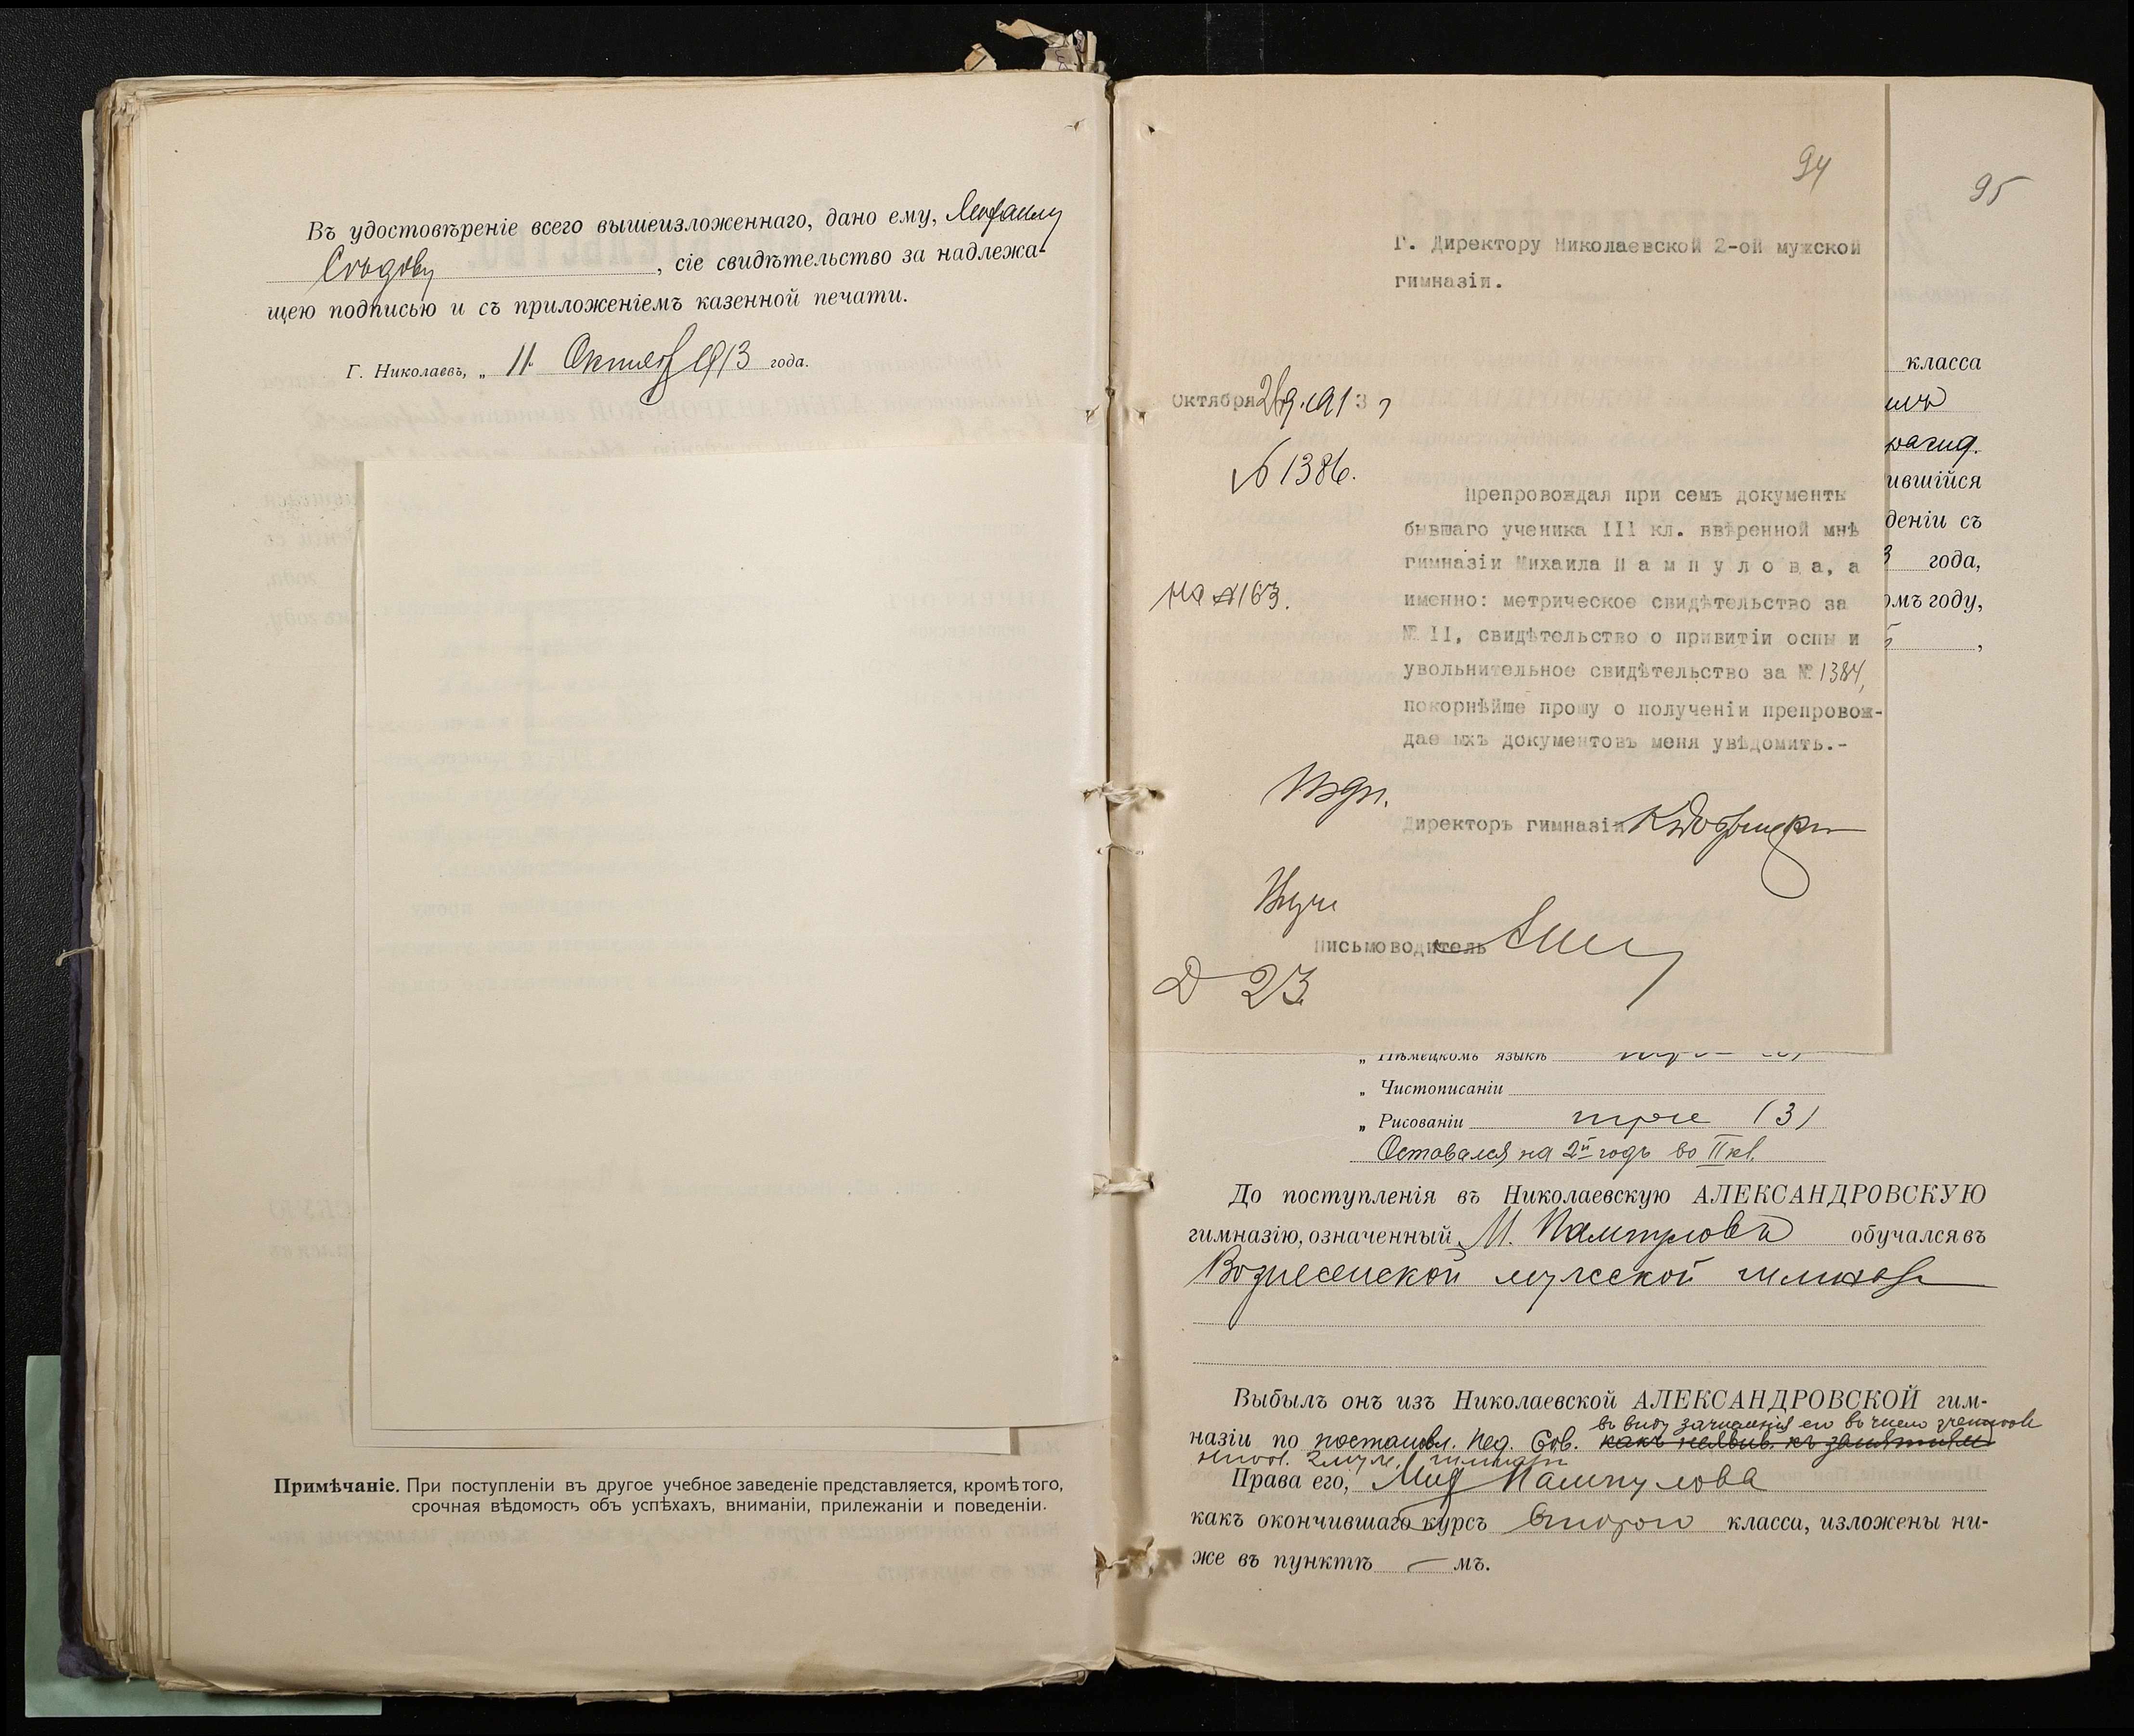 Въ удостовѣреніе всего вышеизложеннаго, дано ему,
Сѣдову, сіе свидѣтельство за надлежа-
щею подписью и съ приложеніемъ казенной печати.
Г. Николаевъ, „ 11 Октября 1913 года.
Примѣчаніе. При поступленіи въ другое учебное заведеніе представляется, кромѣ того,
срочная вѣдомость объ успѣхахъ, вниманіи, прилежаніи и поведеніи.
94
95
Г. Директору Николаевской 2-ой мужской
гимназіи.
Октября 1913 г
№ 1386.
Препровождая при семъ документы
бывшаго ученика III кл. ввѣренной мнѣ
гимназіи Михаила П а м п у л о в а, а
именно: метрическое свидѣтельство за
№ II, свидѣтельство о привитіи оспы и
увольнительное свидѣтельство за № 1384,
покорнѣйше прошу о полученіи препровож-
дае ыхъ документовъ меня увѣдомить.-
На №163.
Директоръ гимназіи
Письмоводитель
Д 23
класса
ившійся
деніи съ
3 года,
омъ году,
„ Нѣмецкомъ языкѣ
„ Чистописаніи
„ Рисованіи три (3)
Оставался на 2й годъ во II кл.
До поступленія въ Николаевскую АЛЕКСАНДРОВСКУЮ
гимназію, означенный М. Пампуловъ обучался въ
Вознесенской мужской гимназіи
Выбылъ онъ изъ Николаевской АЛЕКСАНДРОВСКОЙ гим-
въ виду зачисленія его въ число учениковъ
назіи по постановл. Пед. Сов. какъ неявив. къ занятіямъ
Никол. 2 муж. гимназіи
Права его, Мих Пампулова
какъ окончившаго курсъ второго класса, изложены ни-
же въ пунктѣ — мъ.